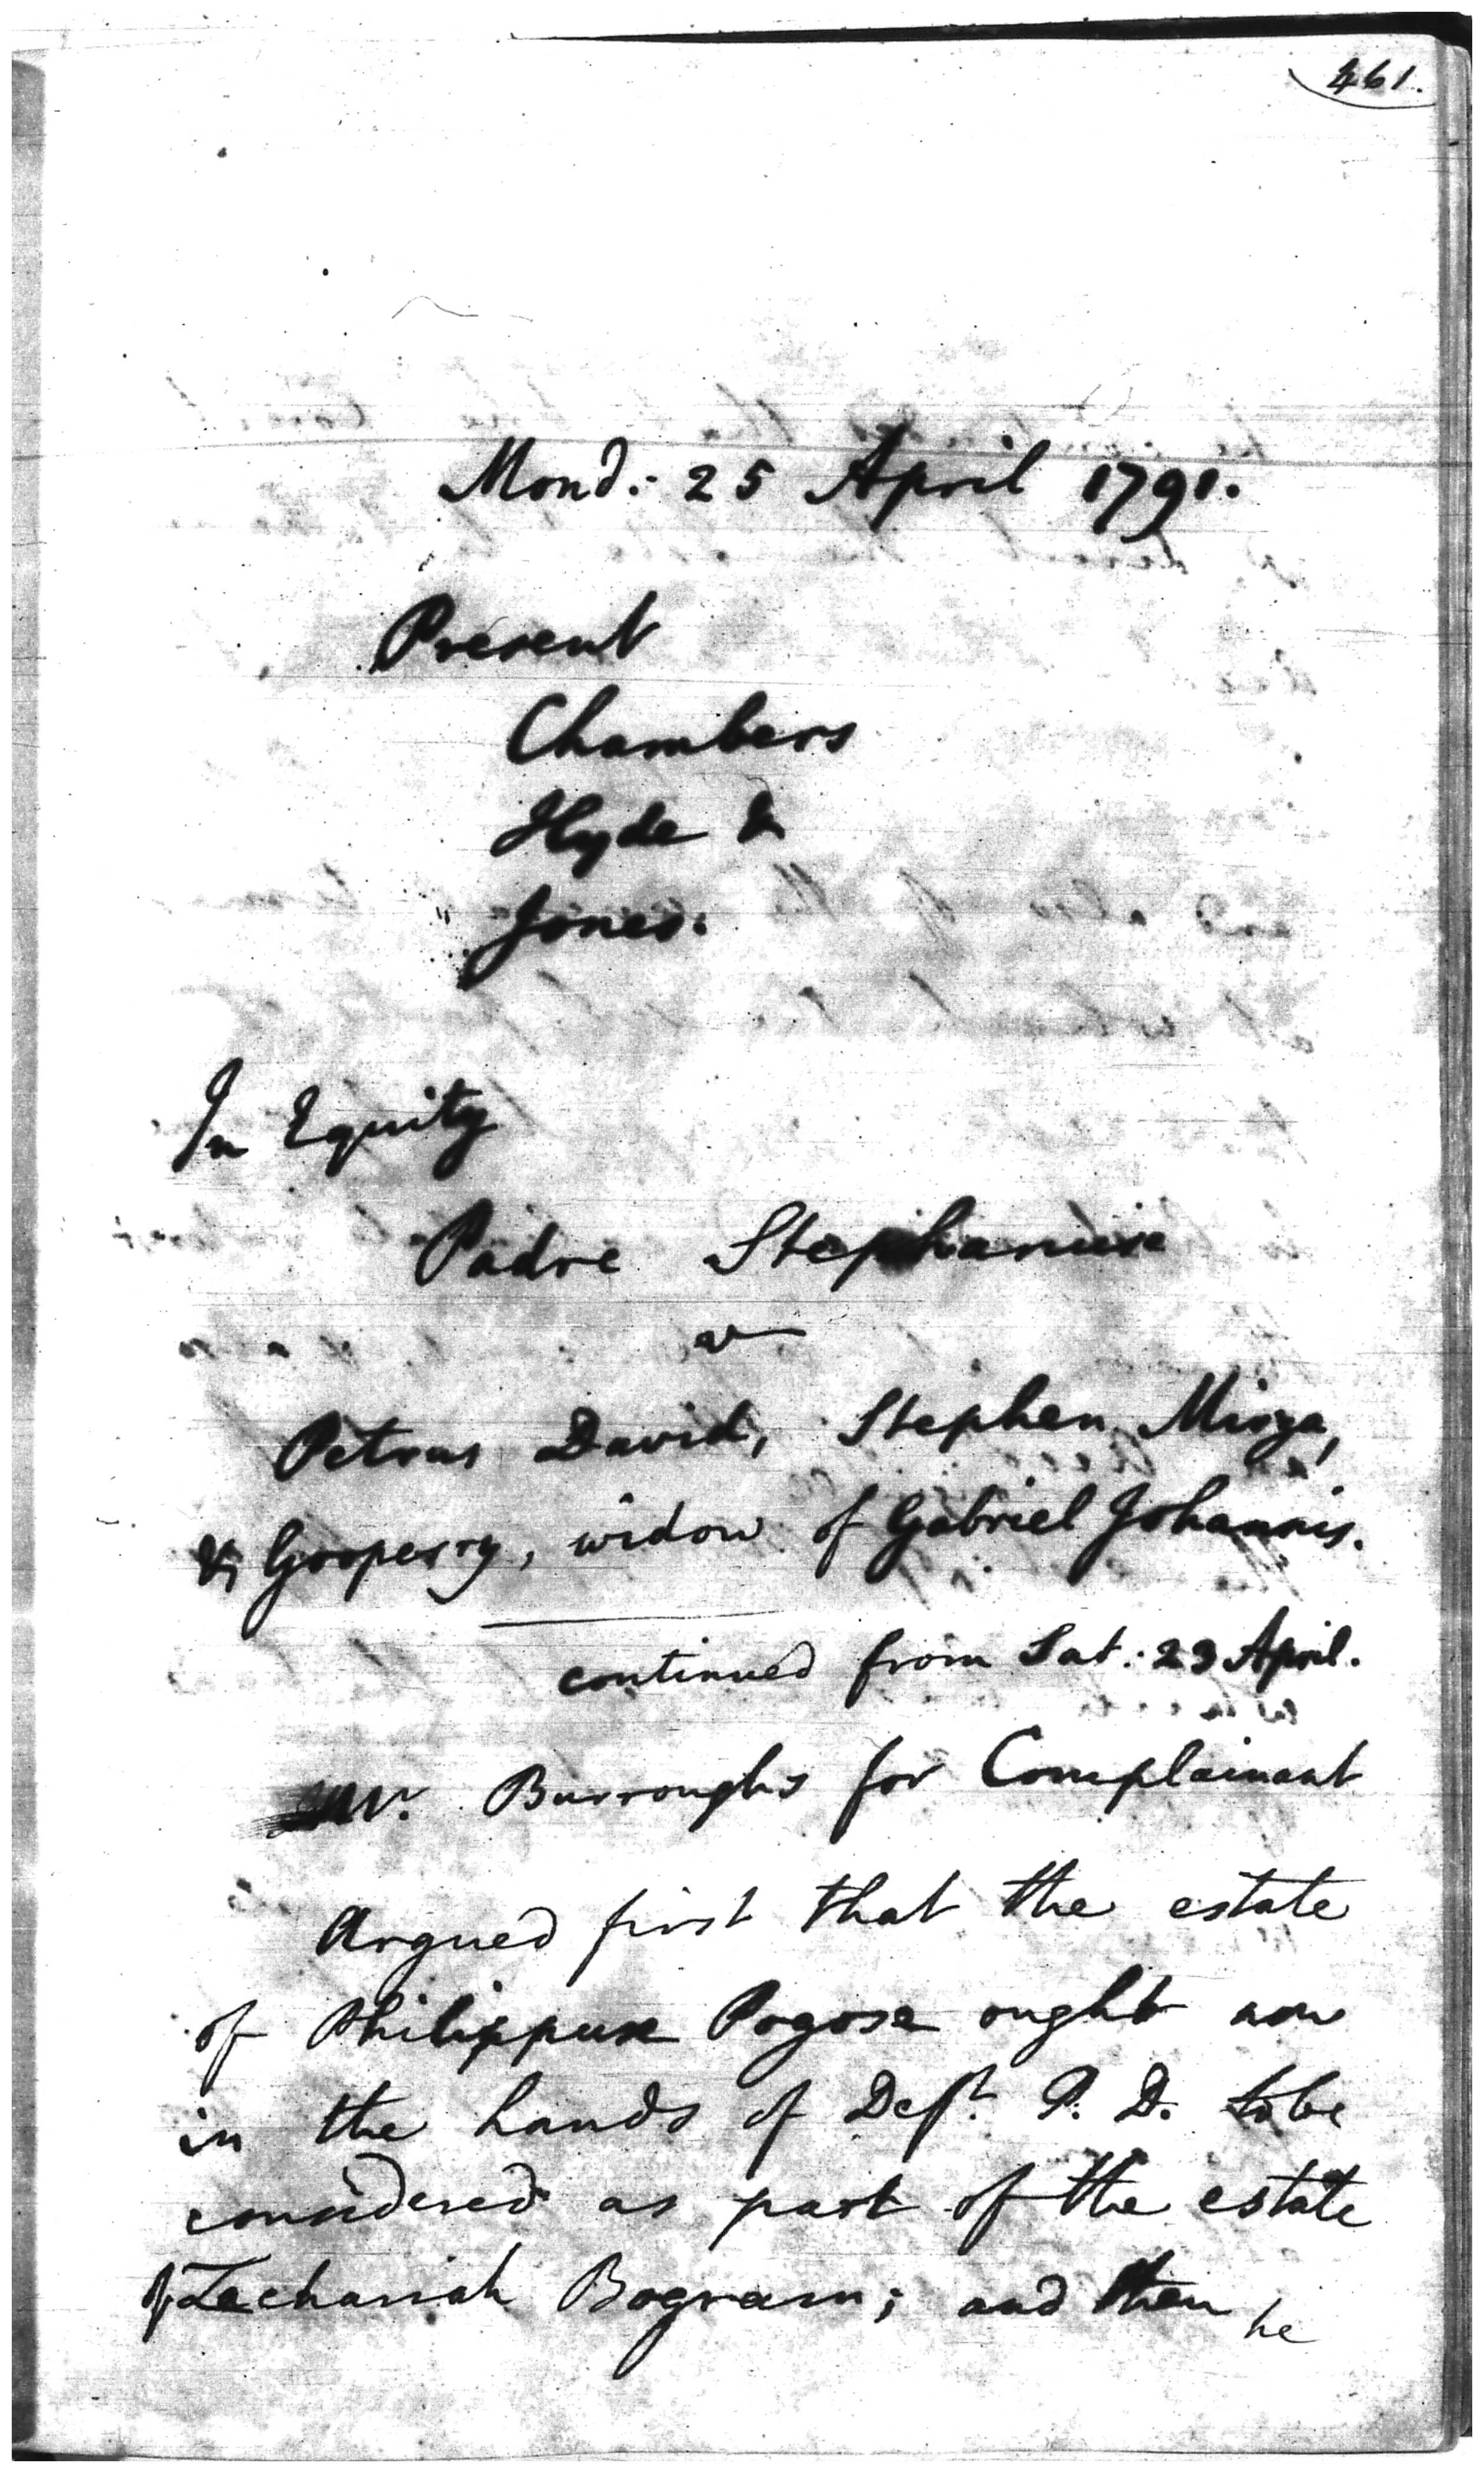 461.
Mond: 25 April 1791.
Present
Chambers
Hyde &
Jones.
In Equity
Padre Stephanuse
v
Petrus David, Stephen Mirza,
& Gooperry, widow of Gabriel Johannis.
continued from Sat: 23 April.
Mr. Burroughs for Complainant
Argued first that the estate
of Philippuse Pogose ought now
in the hands of Deft. P. D. to be
considered as part of the estate
of Zechariah Bogram; and then he